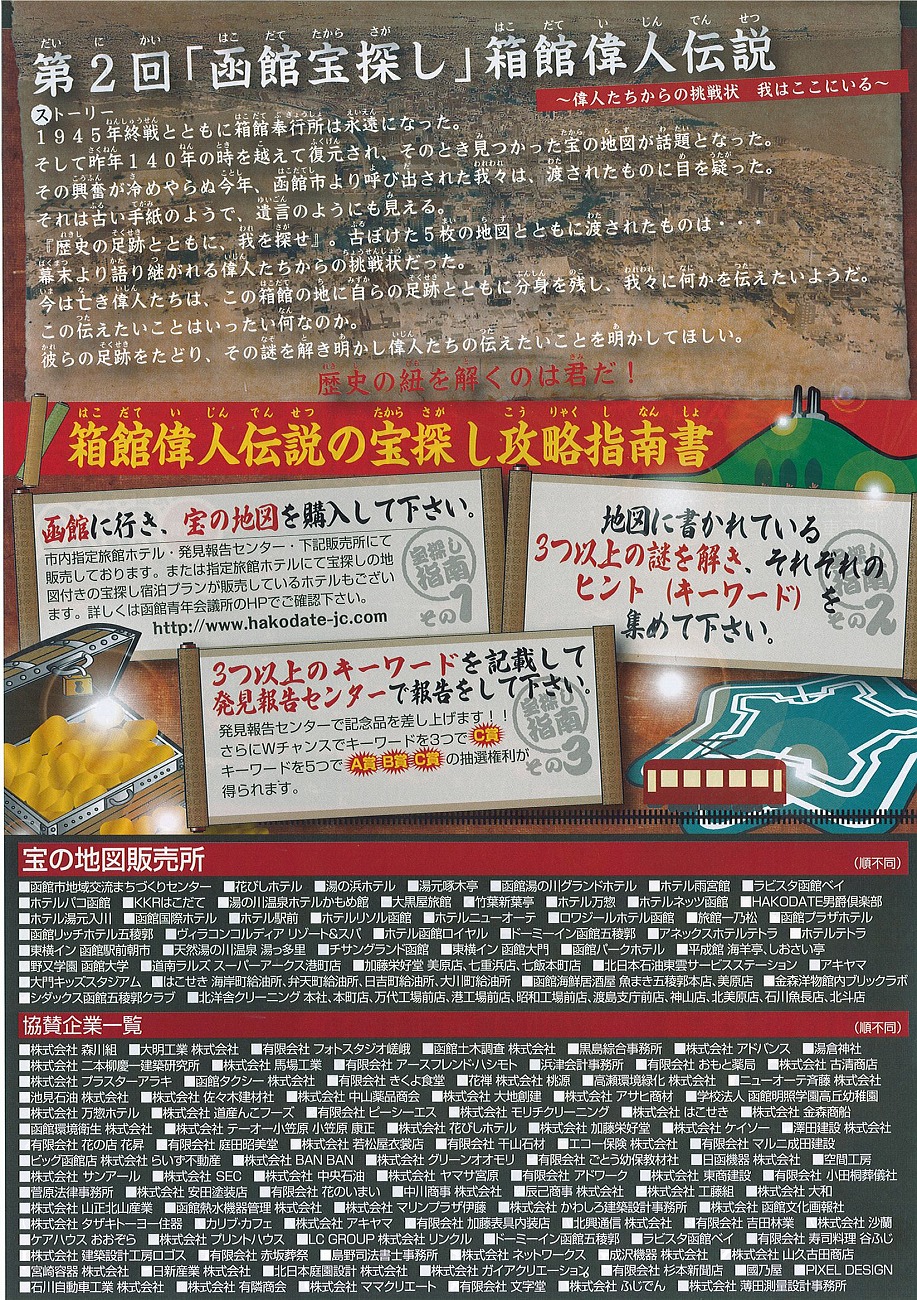 第2回「函館宝探し」箱館偉人伝説
～偉人たちからの挑戦状 我はここにいる～
ストーリー
1945年終戦とともに箱館奉行所は永遠になった。
そして昨年140年の時を越えて復元され、そのとき見つかった宝の地図が話題となった。
その興奮が冷めやらぬ今年、函館市より呼び出された我々は、渡されたものに目を疑った。
それは古い手紙のようで、遺言のようにも見える。
『歴史の足跡とともに、我を探せ』。古ぼけた5枚の地図とともに渡されたものは・・・
幕末より語り継がれる偉人たちからの挑戦状だった。
今は亡き偉人たちは、この箱館の地に自らの足跡とともに分身を残し、我々に何かを伝えたいようだ。
この伝えたいことはいったい何なのか。
彼らの足跡をたどり、その謎を解き明かし偉人たちの伝えたいことを明かしてほしい。
歴史の紐を解くのは君だ！
箱館偉人伝説の宝探し攻略指南書
函館に行き、宝の地図を購入して下さい。
市内指定旅館ホテル・発見報告センター・下記販売所にて
販売しております。または指定旅館ホテルにて宝探しの地
図付きの宝探し宿泊プランが販売しているホテルもござい
ます。詳しくは函館青年会議所のHPでご確認下さい。
http://www.hakodate-jc.com
宝探し指南その1
地図に書かれている
3つ以上の謎を解き、それぞれの
ヒント（キーワード）を
集めて下さい。
宝探し指南その2
3つ以上のキーワードを記載して
発見報告センターで報告をして下さい。
発見報告センターで記念品を差し上げます！！
さらにWチャンスでキーワードを3つでC賞
キーワードを5つでA賞B賞C賞の抽選権利が
得られます。
宝探し指南その3
宝の地図販売所 （順不同）
■函館市地域交流まちづくりセンター ■花びしホテル ■湯の浜ホテル ■湯元啄木亭 ■函館湯の川グランドホテル ■ホテル雨宮館 ■ラビスタ函館ベイ
■ホテルパコ函館 ■KKRはこだて ■湯の川温泉ホテルかもめ館 ■大黒屋旅館 ■竹葉新葉亭 ■ホテル万惣 ■ホテルネッツ函館 ■HAKODATE男爵倶楽部
■ホテル湯元入川 ■函館国際ホテル ■ホテル駅前 ■ホテルリソル函館 ■ホテルニューオーテ ■ロワジールホテル函館 ■旅館一乃松 ■函館プラザホテル
■函館リッチホテル五稜郭 ■ヴィラコンコルディア リゾート&スパ ■ホテル函館ロイヤル ■ドーミーイン函館五稜郭 ■アネックスホテルテトラ ■ホテルテトラ
■東横イン 函館駅前朝市 ■天然湯の川温泉 湯っ多里 ■チサングランド函館 ■東横イン 函館大門 ■函館パークホテル ■平成館 海羊亭、しおさい亭
■野又学園 函館大学 ■道南ラルズ スーパーアークス港町店 ■加藤栄好堂 美原店、七重浜店、七飯本町店 ■北日本石油東雲サービスステーション ■アキヤマ
■大門キッズスタジアム ■はこせき 海岸町給油所、弁天町給油所、日吉町給油所、大川町給油所 ■函館海鮮居酒屋 魚まさ五稜郭本店、美原店 ■金森洋物館内ブリックラボ
■シダックス函館五稜郭クラブ ■北洋舎クリーニング 本社、本町店、万代工場前店、港工場前店、昭和工場前店、渡島支庁前店、神山店、北美原店、石川魚長店、北斗店
協賛企業一覧 （順不同）
■株式会社 森川組 ■大明工業 株式会社 ■有限会社 フォトスタジオ嵯峨 ■函館土木調査 株式会社 ■黒島綜合事務所 ■株式会社 アドバンス ■湯倉神社
■株式会社 二本柳慶一建築研究所 ■株式会社 馬場工業 ■有限会社 アースフレンド・ハシモト ■浜津会計事務所 ■有限会社 おもと薬局 ■株式会社 古清商店
■株式会社 プラスターアラキ ■函館タクシー 株式会社 ■有限会社 さくよ食堂 ■花禅 株式会社 桃源 ■高瀬環境緑化 株式会社 ■ニューオーテ斉藤 株式会社
■池見石油 株式会社 ■株式会社 佐々木建材社 ■株式会社 中山薬品商会 ■株式会社 大地創建 ■株式会社 アサヒ商材 ■学校法人 函館明照学園高丘幼稚園
■株式会社 万惣ホテル ■株式会社 道産んこフーズ ■有限会社 ピーシーエス ■株式会社 モリチクリーニング ■株式会社 はこせき ■株式会社 金森商船
■函館環境衛生 株式会社 ■株式会社 テーオー小笠原 小笠原 康正 ■株式会社 花びしホテル ■株式会社 加藤栄好堂 ■株式会社 ケイソー ■澤田建設 株式会社
■有限会社 花の店 花昇 ■有限会社 庭田昭美堂 ■株式会社 若松屋衣裳店 ■有限会社 干山石材 ■エコー保険 株式会社 ■有限会社 マルニ成田建設
■ビッグ函館店 株式会社 らいず不動産 ■株式会社 BAN BAN ■株式会社 グリーンオオモリ ■有限会社 ごとう幼保教材社 ■日函機器 株式会社 ■空間工房
■株式会社 サンアール ■株式会社 SEC ■株式会社 中央石油 ■株式会社 ヤマサ宮原 ■有限会社 アドワーク ■株式会社 東商建設 ■有限会社 小田桐葬儀社
■菅原法律事務所 ■株式会社 安田塗装店 ■有限会社 花のいまい ■中川商事 株式会社 ■辰己商事 株式会社 ■株式会社 工藤組 ■株式会社 大和
■株式会社 山正北山産業 ■函館熱水機器管理 株式会社 ■株式会社 マリンプラザ伊藤 ■株式会社 かわしろ建築設計事務所 ■株式会社 函館文化画報社
■株式会社 タザキトーヨー住器 ■カリブ・カフェ ■株式会社 アキヤマ ■有限会社 加藤表具内装店 ■北興通信 株式会社 ■有限会社 吉田林業 ■株式会社 沙蘭
■ケアハウス おおぞら ■株式会社 プリントハウス ■LC GROUP 株式会社 リンクル ■ドーミーイン函館五稜郭 ■ラビスタ函館ベイ ■有限会社 寿司料理 谷ふじ
■株式会社 建築設計工房ロゴス ■有限会社 赤坂葬祭 ■島野司法書士事務所 ■株式会社 ネットワークス ■成沢機器 株式会社 ■株式会社 山久古田商店
■宮崎容器 株式会社 ■日新産業 株式会社 ■北日本庭園設計 株式会社 ■株式会社 ガイアクリエーション ■有限会社 杉本新聞店 ■國乃屋 ■PIXEL DESIGN
■石川自動車工業 株式会社 ■株式会社 有隣商会 ■株式会社 ママクリエート ■有限会社 文字堂 ■株式会社 ふじでん ■株式会社 薄田測量設計事務所